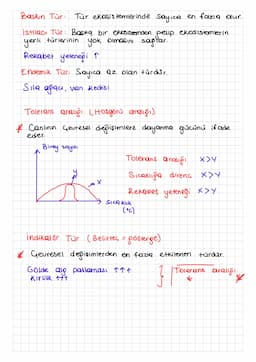 Baskın Tür: Tür ekosistemlerinde sayıca en fazla olur.
İstilacı Tür: Başka bir ekosistemden gelip ekosistemlerin
yerli türlerinin yok olmasını sağlar.
Rekabet yeteneği ↑
Endemik Tür: Sayıca az olan türdür.
Sığla ağacı, van kedisi
Tolerans aralığı (Hoşgörü aralığı)
Canlının çevresel değişimlere dayanma gücünü ifade
eder.
Birey sayısı
y
x
Sıcaklık
(°C)
Tolerans aralığı X>Y
Sıcaklığa direnç X>Y
Rekabet yeteneği X>Y
İndikatör Tür (Belirteç = gösterge)
Çevresel değişimlerden en fazla etkilenen türdür.
Gölde alg patlaması ↑↑↑
Kirlilik ↑↑↑
Tolerans aralığı
↓